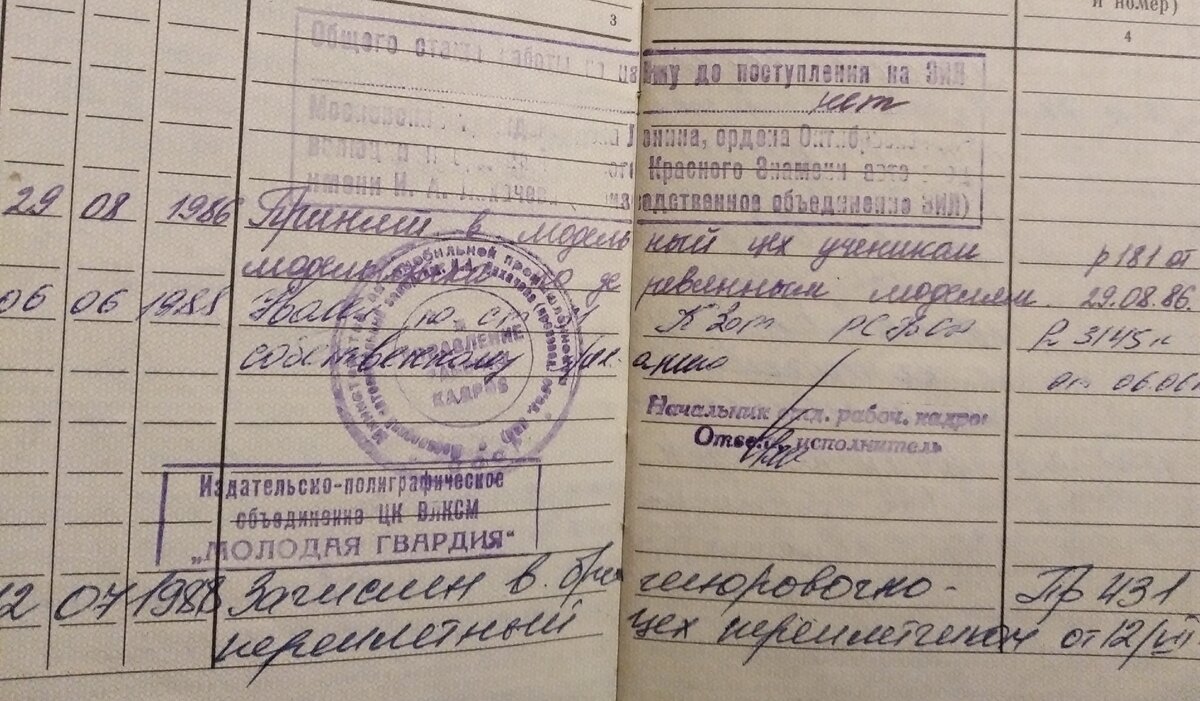 3
и номер)
4
Общего стажа работы по найму до поступления на ЗИЛ
нет
Ленина, ордена Октябрьской
Красного Знамени авто
имени И. А. Лихачева (производственное объединение ЗИЛ)
29 08 1986 Принят в модельный цех учеником р 181 от
модельщика по деревянным моделям. 29.08.86.
06 06 1988 Уволен по ст. 31 КЗот РСФСР Р 3145к
собственному желанию от 06.06
УПРАВЛЕНИЕ
КАДРОВ
Начальник отд. рабоч. кадров
Ответ. исполнитель
Издательско-полиграфическое
объединение ЦК ВЛКСМ
„МОЛОДАЯ ГВАРДИЯ"
12 07 1988 Зачислен в брошюровочно- Пр 431
переплетный цех переплетчиком от 12/VII